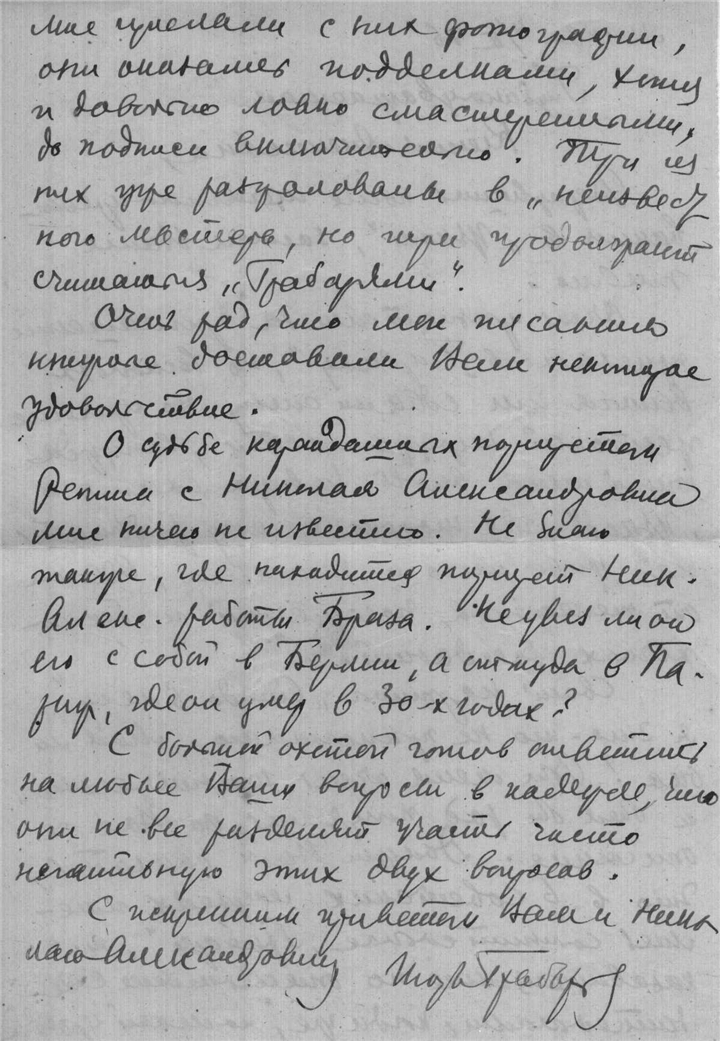 мне прислали с них фотографии,
они оказались подделками, хотя
и довольно ловко смастеренными,
до подписи включительно. Три из
них уже разжалованы в „неизвест
ного мастера, но три продолжают
считаться „Грабарями“.
Очень рад, что мои писания
доставили Вам некоторое
удовольствие.
О судьбе карандашных портретов
Репина с Николая Александровича
мне ничего не известно. Не знаю
также, где находится портрет Ник.
Алекс. работы Браза. Не увез ли он
его с собой в Берлин, а оттуда в Па-
риж, где он умер в 30-х годах?
С большой охотой готов ответить
на любые Ваши вопросы в надежде, что
они не все разделят участь чисто
негативную этих двух вопросов.
С искренним приветом Вам и Нико
лаю Александровичу Игорь Грабарь